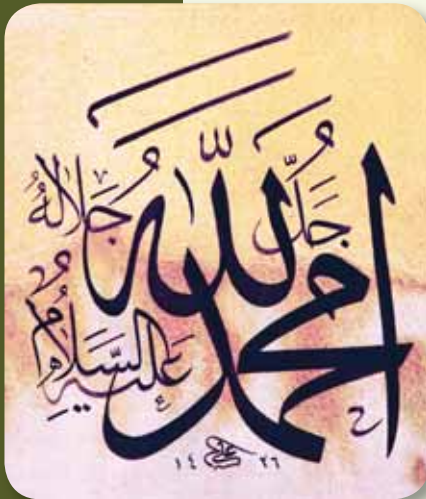 الله
جَلَّ جَلَالُهُ
محمد
عَلَيْهِ السَّلَامُ
١٤ ٢٦